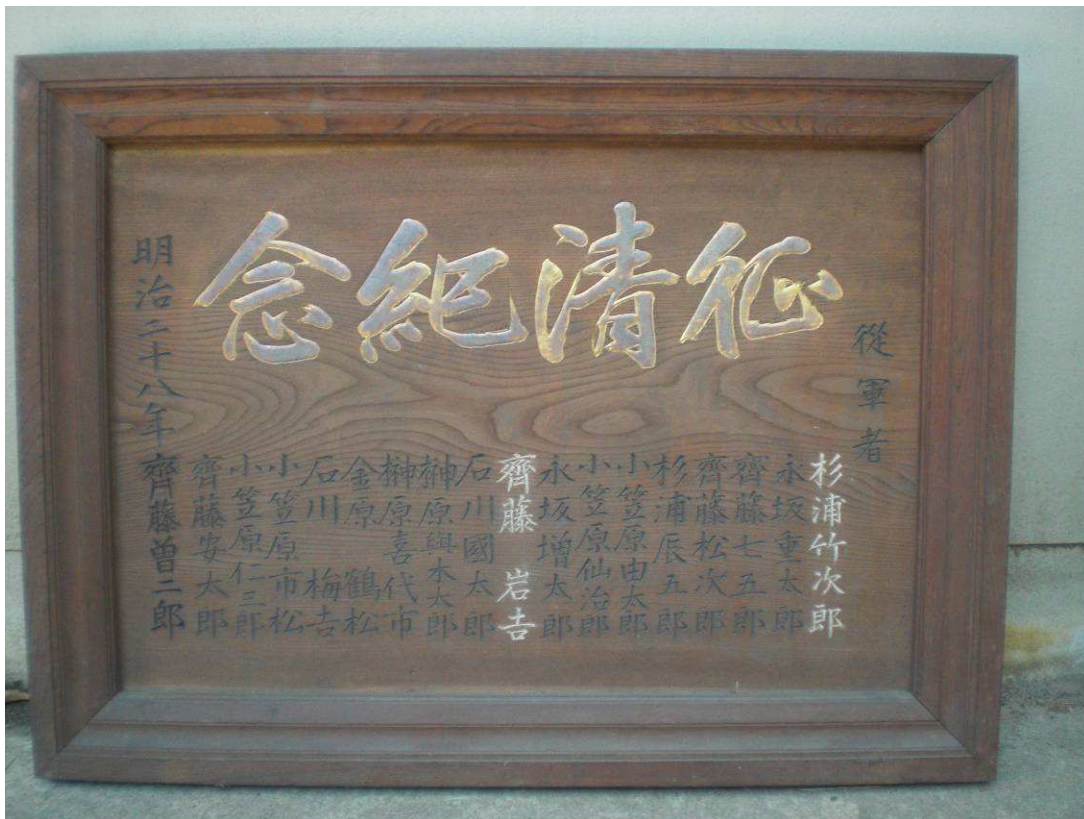 征清紀念
從軍者
杉浦竹次郎
永坂重太郎
齊藤七五郎
齊藤松次郎
杉浦辰五郎
小笠原由太郎
小笠原仙治郎
永坂増太郎
齊藤岩吉
石川國太郎
榊原與木太郎
榊原喜代市
金原鶴松
石川梅吉
小笠原市松
小笠原仁三郎
齊藤安太郎
齊藤曽二郎
明治二十八年